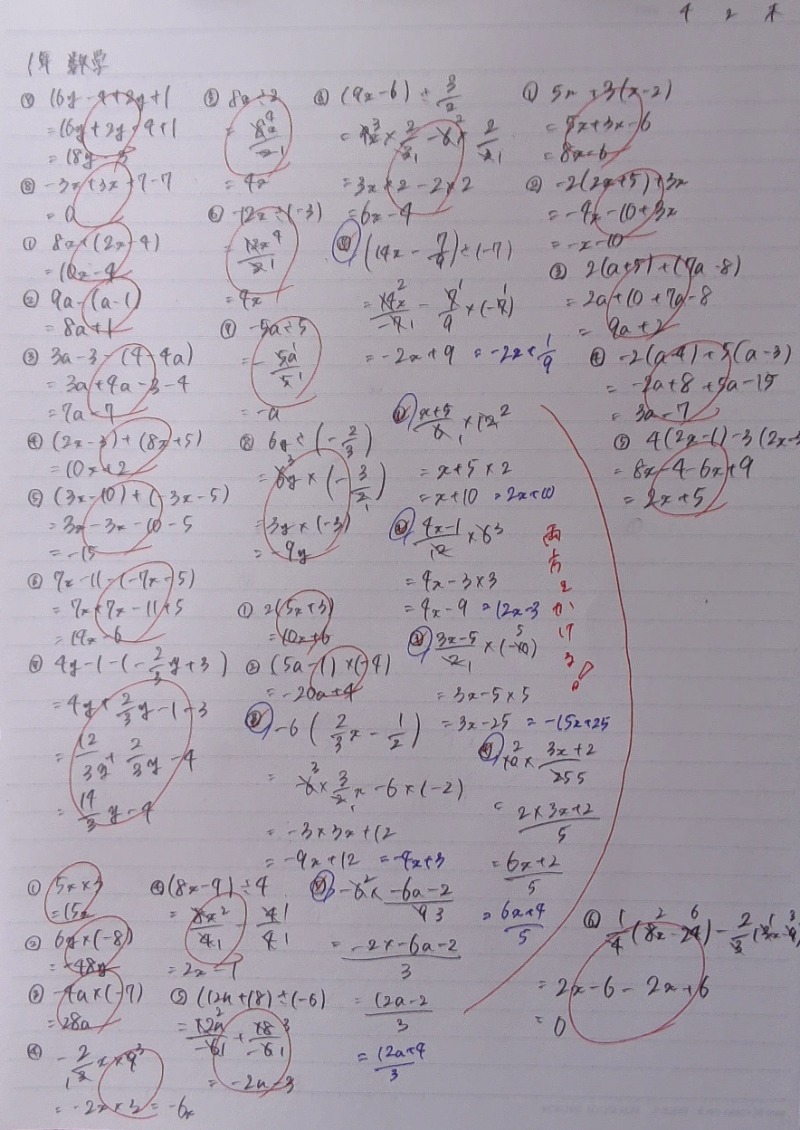 4 2 木
1年 数学
⑦ 16y-4+2y+1
=16y+2y-4+1
=18y-3
⑧ -3x+3x+7-7
=0
① 8x+(2x-4)
=10x-4
② 9a-(a-1)
=8a+1
③ 3a-3-(4-4a)
=3a+4a-3-4
=7a-7
④ (2x-3)+(8x+5)
=10x+2
⑤ (3x-10)+(-3x-5)
=3x-3x-10-5
=-15
⑥ 7x-11-(-7x-5)
=7x+7x-11+5
=14x-6
⑦ 4y-1-(-2/3y+3)
=4y+2/3y-1-3
=12/3y+2/3y-4
=14/3y-4
① 5x×3
=15x
② 6y×(-8)
=-48y
③ -4a×(-7)
=28a
④ -2/3x×9
=-2x×3=-6x
⑤ 8x÷2
=8x/2
=4x
⑥ -12x÷(-3)
=12x/3
=4x
⑦ -5a÷5
=-5a/5
=-a
⑧ 6y÷(-2/3)
=6y×(-3/2)
=3y×(-3)
=-9y
① 2(5x+3)
=10x+6
② (5a-1)×(-4)
=-20a+4
③ -6(2/3x-1/2)
=-3×3x+12
=-9x+12 =-4x+3
④ (8x-4)÷4
=8x/4-4/4
=2x-1
⑤ (12a+18)÷(-6)
=12a/-6+18/-6
=-2a-3
⑥ (9x-6)÷3/2
=9x×2/3-6×2/3
=3x×2-2×2
=6x-4
(14x-7/9)÷(-7)
=14x/-7-7/9×(-7)
=-2x+9 =-2x+1/9
① x+5/6×12
=x+5×2
=x+10 =2x+10
② 4x-1/12×6
=4x-3×3
=4x-9 =12x-3
③ 3x-5/2×(-10)
=3x-5×5
=3x-25 =-15x+25
④ 10×3x+2/25
=2×3x+2/5
=6x+2/5
=6x+4/5
-6×-6a-2/9
=-2×-6a-2/3
=12a-2/3
=12a+4/3
両方にかける!。
① 5x+3(x-2)
=5x+3x-6
=8x-6
② -2(2x+5)+3x
=-4x-10+3x
=-x-10
③ 2(a+5)+(7a-8)
=2a+10+7a-8
=9a+2
④ -2(a-4)+5(a-3)
=-2a+8+5a-15
=3a-7
⑤ 4(2x-1)-3(2x-3
=8x-4-6x+9
=2x+5
⑥ 1/4(8x-24)-2/3(3x-9)
=2x-6-2x+6
=0